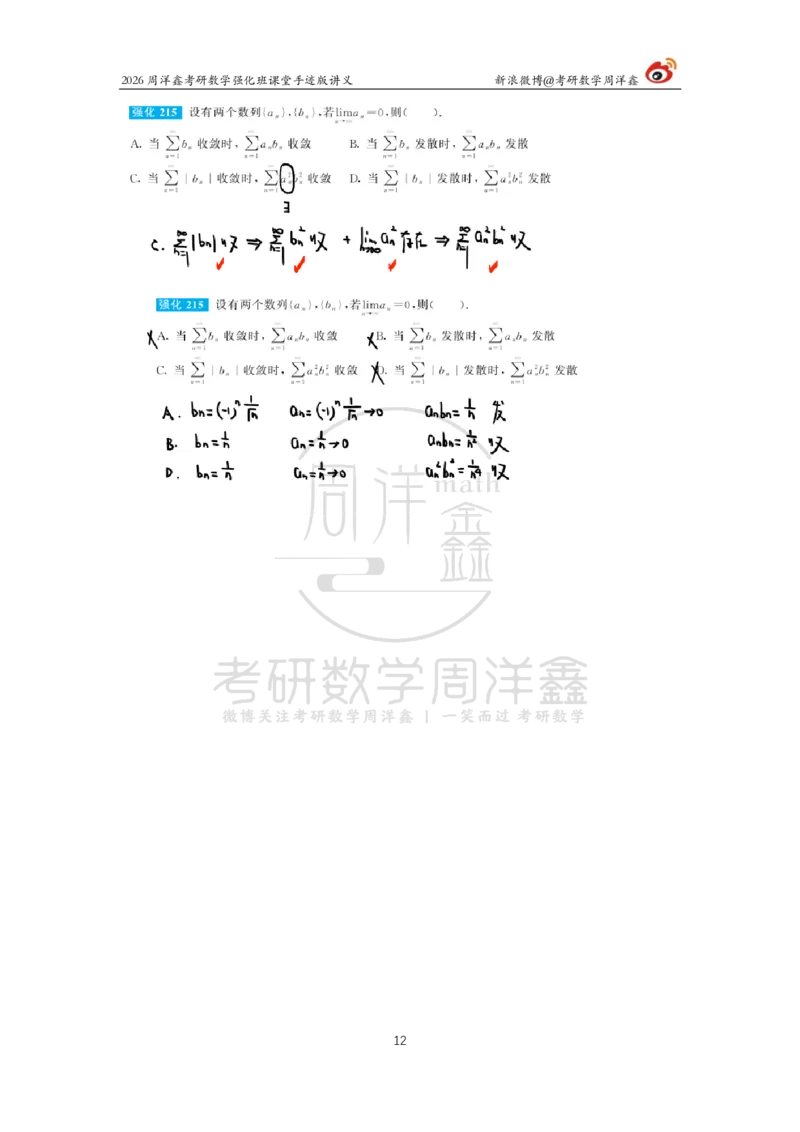 2026 周洋鑫考研数学强化班课堂手迹版讲义 新浪微博@考研数学周洋鑫
强化 215 设有两个数列{aₙ},{bₙ},若lim_{n→∞} aₙ=0,则( ).
A. 当 ∑_{n=1}^{∞} bₙ 收敛时, ∑_{n=1}^{∞} aₙbₙ 收敛 B. 当 ∑_{n=1}^{∞} bₙ 发散时, ∑_{n=1}^{∞} aₙbₙ 发散
C. 当 ∑_{n=1}^{∞} |bₙ| 收敛时, ∑_{n=1}^{∞} aₙ²bₙ² 收敛 D. 当 ∑_{n=1}^{∞} |bₙ| 发散时, ∑_{n=1}^{∞} aₙ²bₙ² 发散
∃
C. ∑_{n=1}^{∞} |bₙ| 收 ⇒ ∑_{n=1}^{∞} bₙ² 收 + lim_{n→∞} aₙ² 存在 ⇒ ∑_{n=1}^{∞} aₙ²bₙ² 收
强化 215 设有两个数列{aₙ},{bₙ},若lim_{n→∞} aₙ=0,则( ).
A. 当 ∑_{n=1}^{∞} bₙ 收敛时, ∑_{n=1}^{∞} aₙbₙ 收敛 B. 当 ∑_{n=1}^{∞} bₙ 发散时, ∑_{n=1}^{∞} aₙbₙ 发散
C. 当 ∑_{n=1}^{∞} |bₙ| 收敛时, ∑_{n=1}^{∞} aₙ²bₙ² 收敛 D. 当 ∑_{n=1}^{∞} |bₙ| 发散时, ∑_{n=1}^{∞} aₙ²bₙ² 发散
A. bₙ=(-1)ⁿ 1/√n aₙ=(-1)ⁿ 1/√n →0 aₙbₙ= 1/n 发
B. bₙ= 1/n aₙ= 1/n →0 aₙbₙ= 1/n² 收
D. bₙ= 1/n aₙ= 1/n →0 aₙ²bₙ² = 1/n⁴ 收
周洋鑫 math
考研数学周洋鑫
微博关注考研数学周洋鑫 | 一笑而过 考研数学
12